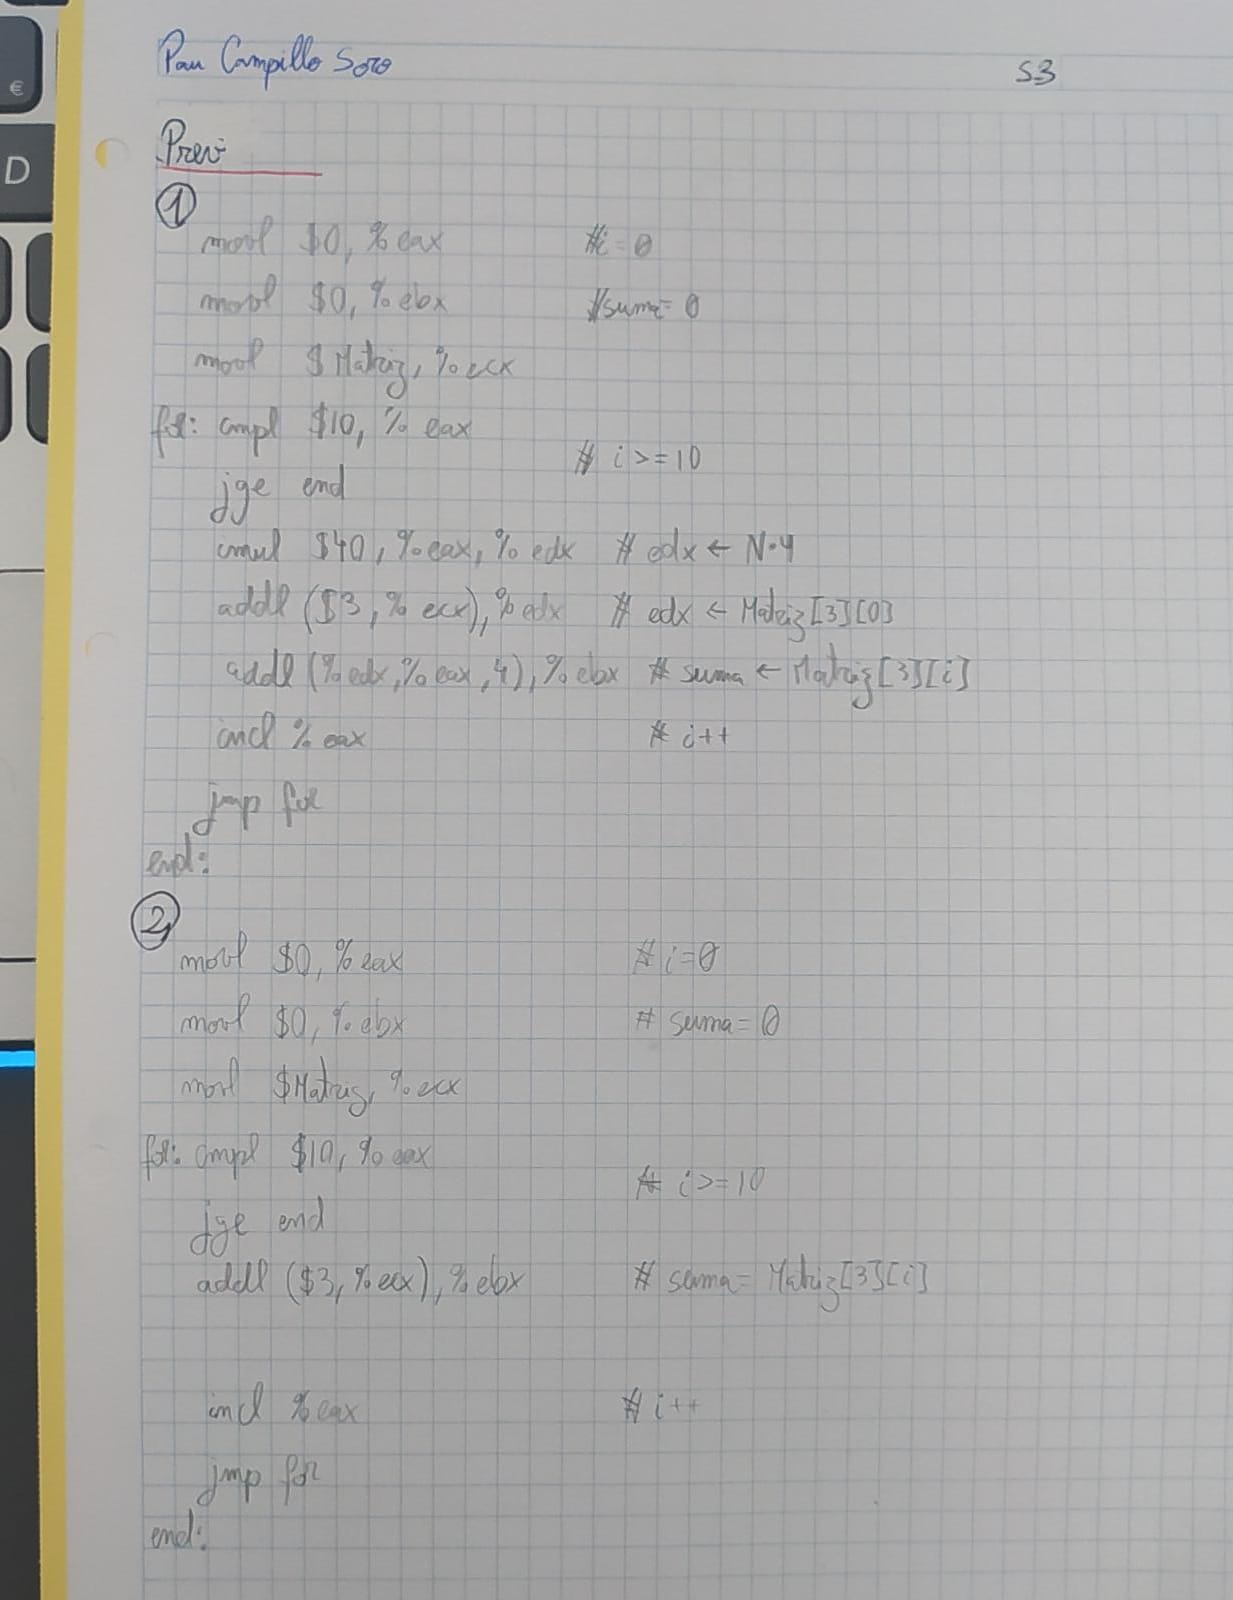 €
D
Pau Campillo Soro
S3
Previ
1
movl $0, %eax #i=0
movl $0, %ebx #suma=0
movl $Matriz, %ecx
for: cmpl $10, %eax
# i>=10
jge end
imul $40, %eax, %edx # edx ← N·4
addl ($3, %ecx), %edx # edx ← Matriz[3][0]
addl (%edx, %eax, 4), %ebx # suma ← Matriz[3][i]
incl %eax # i++
jmp for
end:
2
movl $0, %eax # i=0
movl $0, %ebx # suma=0
movl $Matriz, %ecx
for: cmpl $10, %eax
# i>=10
jge end
addl ($3, %ecx), %ebx # suma= Matriz[3][i]
incl %eax # i++
jmp for
end: